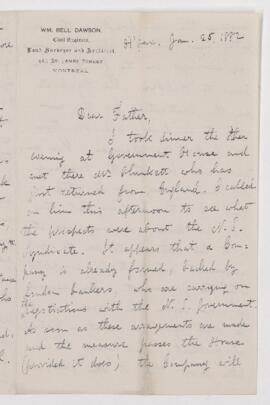 WM. BELL DAWSON,
Civil Engineer,
Land Surveyor and Architect,
ST. JAMES STREET
MONTREAL
Jan. 25, 1882
Dear Father,
I took dinner the other
evening at Government House and
met there Mr Plunkett who has
just returned from England. I called
on him this afternoon to see what
the prospects were about the N. S.
Syndicate. It appears that a Com-
pany is already formed, backed by
London bankers, who are carrying on
the negotiations with the N. S. Government.
As soon as these arrangements are made
and the measure passes the House
(provided it does) the Company will